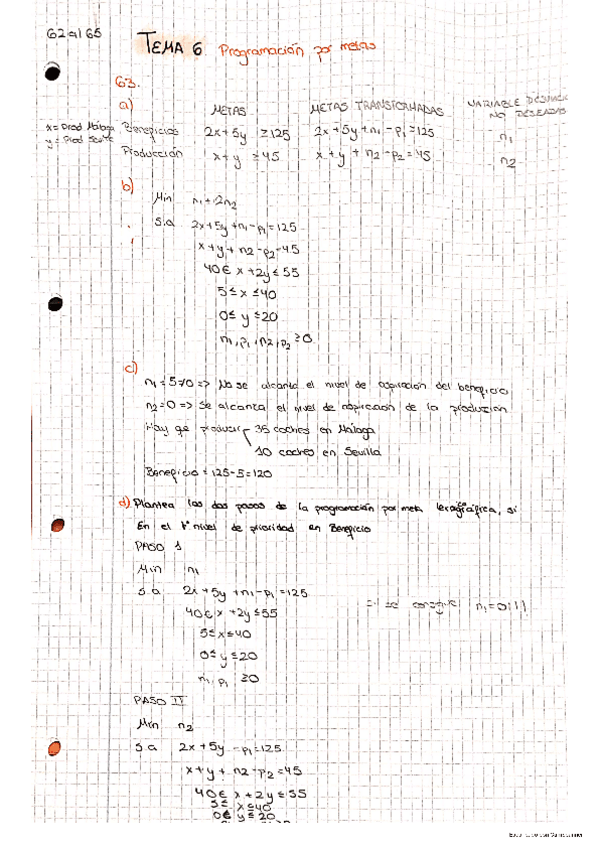 62 al 65
TEMA 6 Programación por metas
63.
a) METAS METAS TRANSFORMADAS VARIABLE DESVIACIÓN NO DESEADAS
x = Prod Málaga
y = Prod Sevilla
Beneficios 2x+5y ≥125 2x+5y+n₁-p₁=125 n₁
Producción x+y ≥45 x+y+n2-p2=45 n2
b)
Min n₁+2n2
s.a 2x+5y+n₁-p₁=125
x+y+n2-p2=45
40≤x+2y≤55
5≤x≤40
0≤y≤20
n₁,p₁,n2,p2≥0
c)
n₁=5≠0 => No se alcanza el nivel de aspiración del beneficio
n2=0 => Se alcanza el nivel de aspiración de la producción
Hay que producir 35 coches en Málaga
10 coches en Sevilla
Beneficio = 125-5=120
d) Plantea los dos pasos de la programación por meta lexicográfica, si
En el 1º nivel de prioridad en Beneficio
PASO 1
Min n₁
s.a 2x+5y+n₁-p₁=125
40≤x+2y≤55
se consigue n₁=0!!!
5≤x≤40
0≤y≤20
n₁,p₁≥0
PASO II
Min n2
s.a 2x+5y-p₁=125
x+y+n2-p2=45
40≤x+2y≤55
5≤x≤40
0≤y≤20